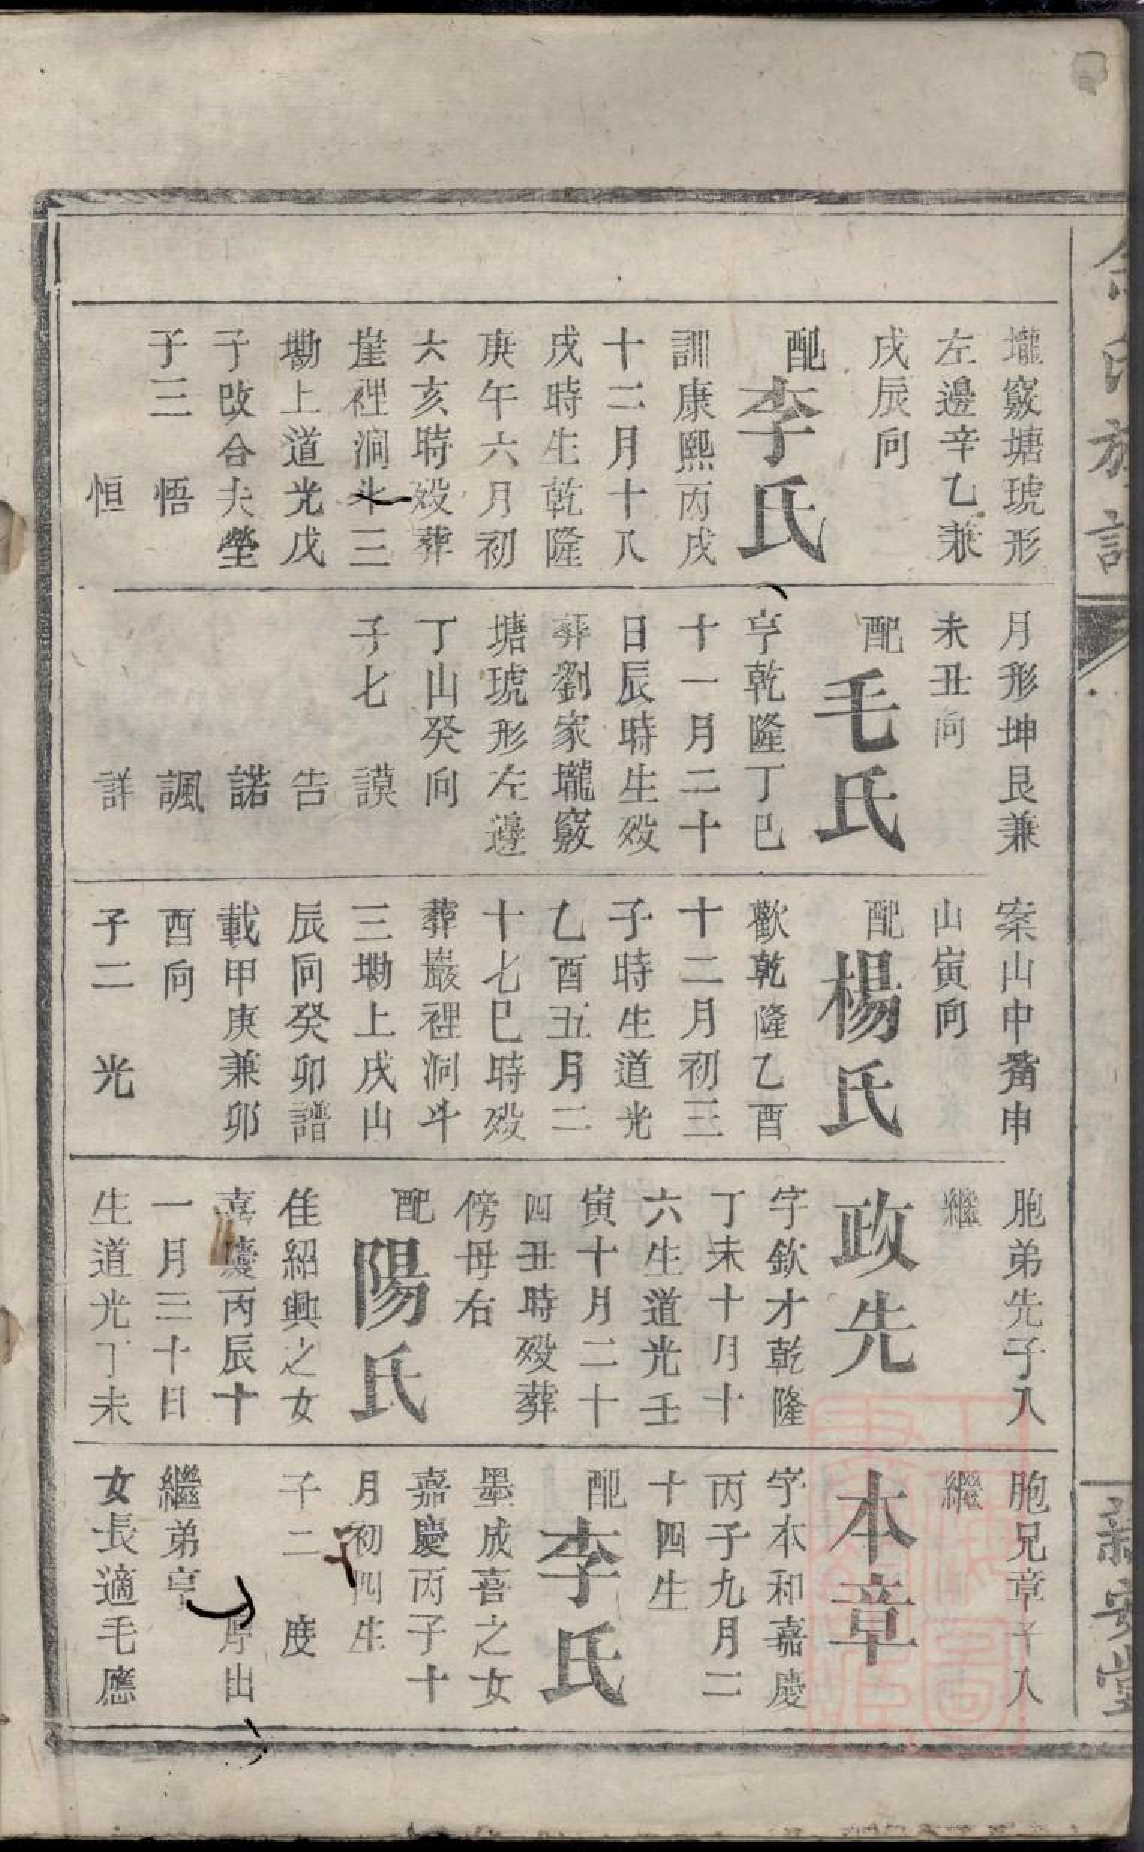 氏族譜
新安堂
壠竅塘琥形
左邊辛乙兼
戌辰向
配李氏
訓康熙丙戌
十二月十八
戌時生乾隆
庚午六月初
六亥時歿葬
崖裡洞斗三
墈上道光戊
子改合夫塋
子三 悟
恒
月形坤艮兼
未丑向
配毛氏
亨乾隆丁巳
十一月二十
日辰時生歿
葬劉家壠竅
塘琥形左邊
丁山癸向
子七 謨
告
諾
諷
詳
案山中獨申
山寅向
配楊氏
歡乾隆乙酉
十二月初三
子時生道光
乙酉五月二
十七巳時歿
葬巖裡洞斗
三墈上戌山
辰向癸卯譜
載甲庚兼卯
酉向
子二 光
胞弟先子入
繼
政先
字欽才乾隆
丁未十月十
六生道光壬
寅十月二十
四丑時歿葬
傍母右
配陽氏
佳紹興之女
嘉慶丙辰十
一月三十日
生道光丁未
胞兄章子入
繼
本章
字本和嘉慶
丙子九月二
十四生
配李氏
墨成喜之女
嘉慶丙子十
月初四生
子二 度
序出
繼弟亨
女長適毛應